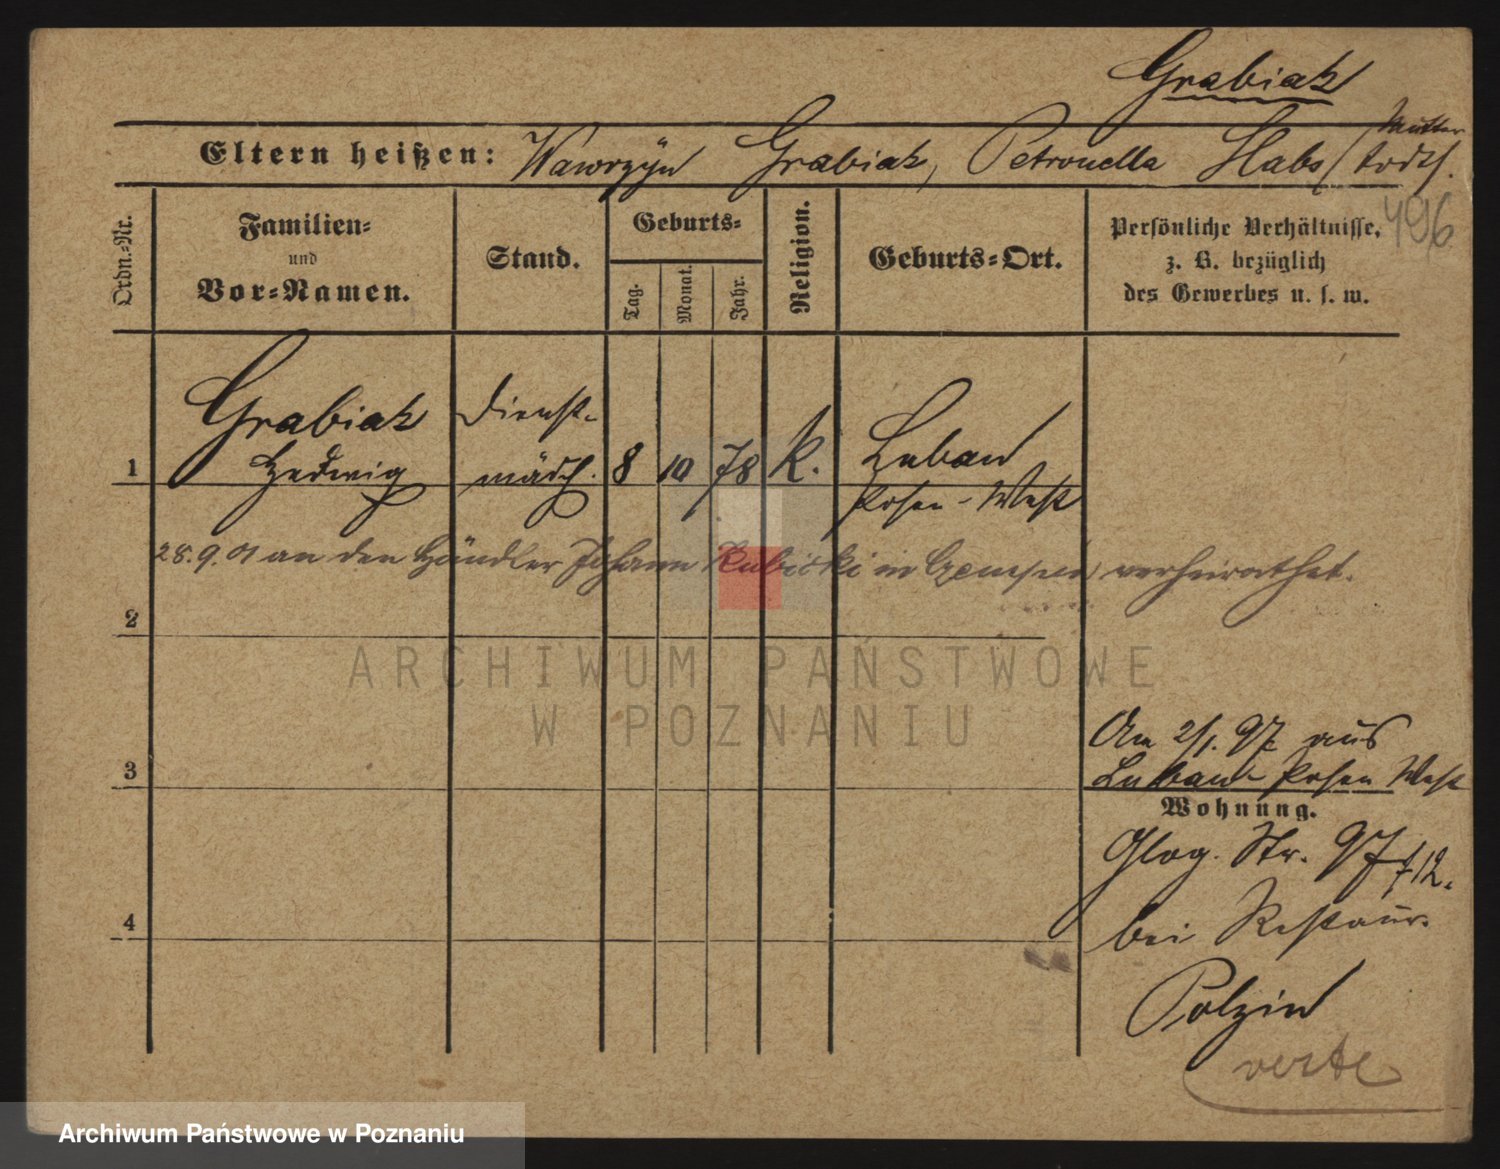 Grabiak
Eltern heißen: Wawrzyn Grabiak, Petronella Habs (Mutter todt).
496
Ordn.-Nr.
Familien- und Vor-Namen.
Stand.
Geburts-
Tag.
Monat.
Jahr.
Religion.
Geburts-Ort.
Persönliche Verhältnisse,
z. B. bezüglich
des Gewerbes u. s. w.
1
Grabiak
Hedwig
Dienst-
mädch.
8 10 78 K.
Luban
Posen-West
28.9.01 an den Händler Johann Kubicki in verheirathet.
2
ARCHIWUM PAŃSTWOWE
W POZNANIU
3
Am 2/1. 97 aus
Luban Posen West
Wohnung.
Glog. Str. 97
4
bei Restaur.
Polzin
verte
Archiwum Państwowe w Poznaniu